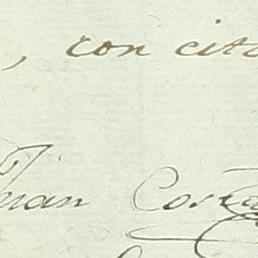 , con cita
Juan Cos